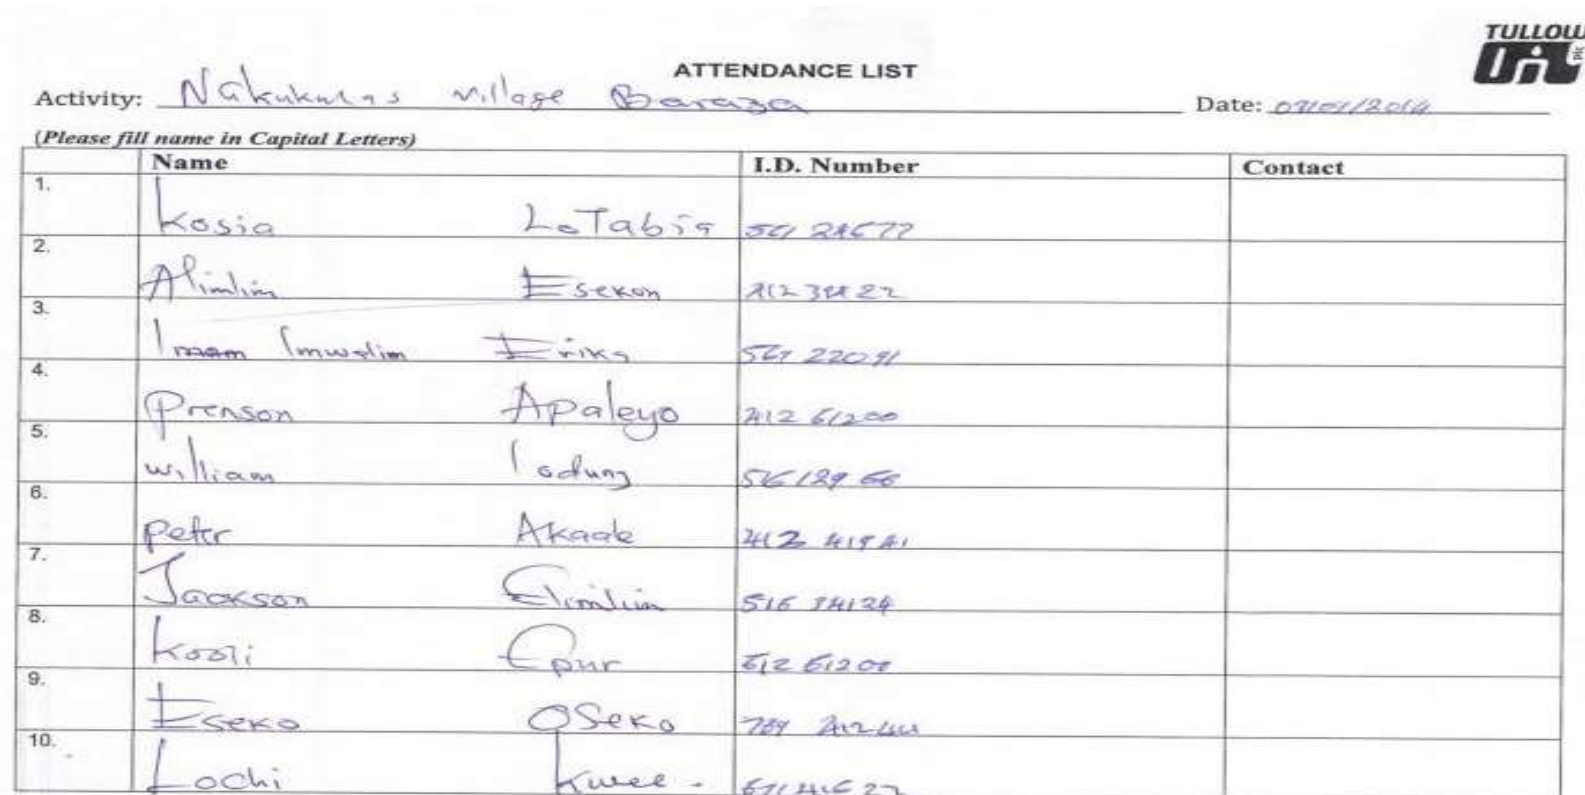 TULLOW
Oil plc
ATTENDANCE LIST
Activity: Nakukulas village Baraza Date: /2014
(Please fill name in Capital Letters)
Name I.D. Number Contact
1. Kosia LoTabia
2. Alimlim Esekon
3. Imam Imwalim Erika 22091
4. Prenson Apaleyo 212 61200
5. William lodung 516 129 66
6. Peter Akaale
7. Jackson Elimlim 516 34124
8. Kooli Epur 612 61200
9. Eseko OSeko 789
10. Lochi Kwee.